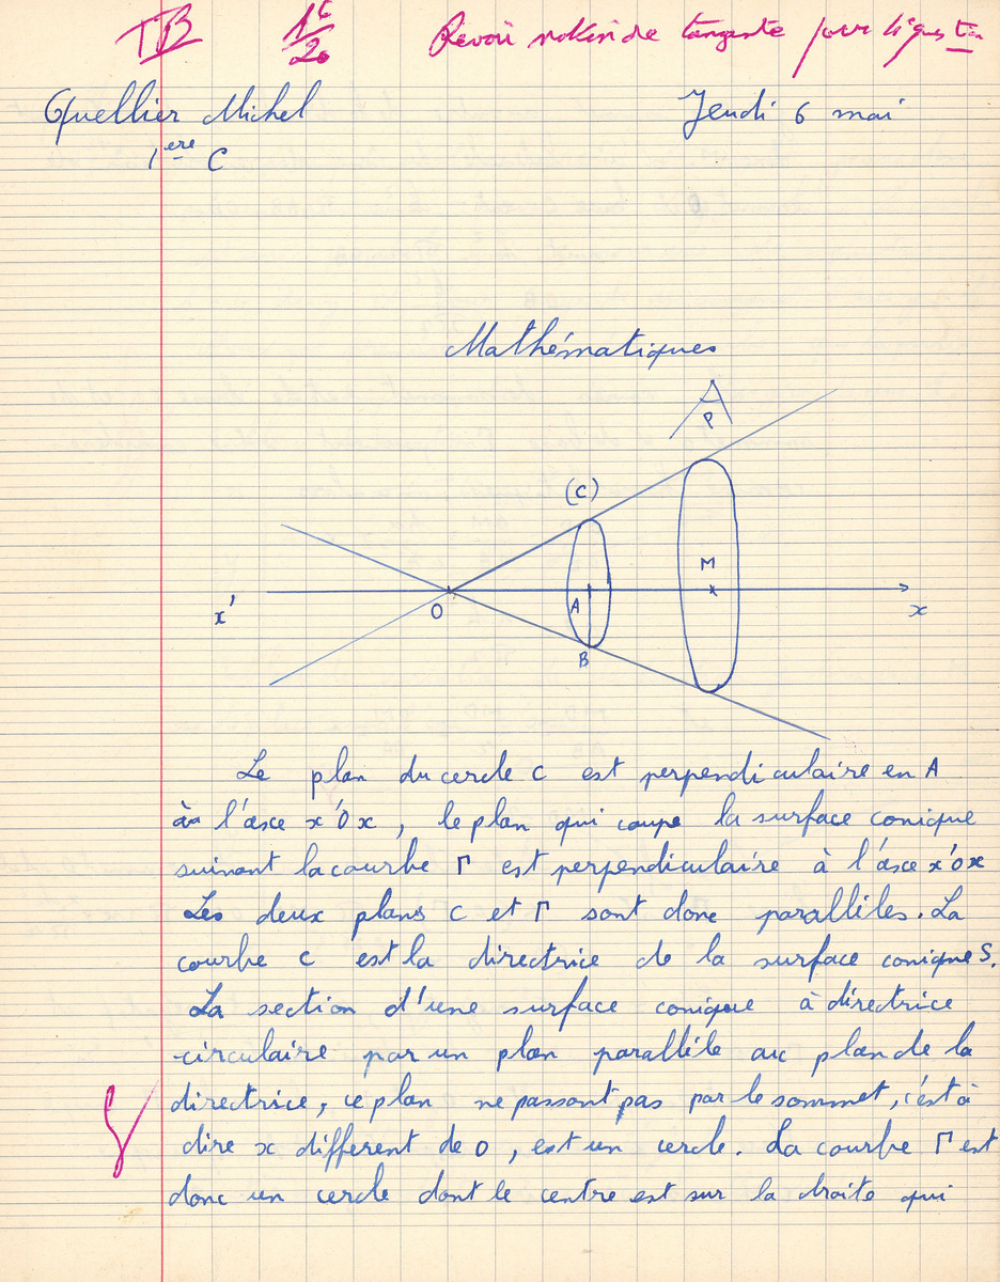 TB
Revoir notion de tangente pour lignes
Quellier Michel
Jeudi 6 mai
1ère C
Mathématiques
P
(C)
M
A
O
x'
x
B
Le plan du cercle C est perpendiculaire en A
à l'axe x'Ox, le plan qui coupe la surface conique
suivant la courbe Γ est perpendiculaire à l'axe x'ox
Les deux plans C et Γ sont donc parallèles. La
courbe C est la directrice de la surface conique S.
La section d'une surface conique à directrice
circulaire par un plan parallèle au plan de la
directrice, ce plan ne passant pas par le sommet, c'est à
dire x différent de 0, est un cercle. La courbe Γ est
donc un cercle dont le centre est sur la droite qui